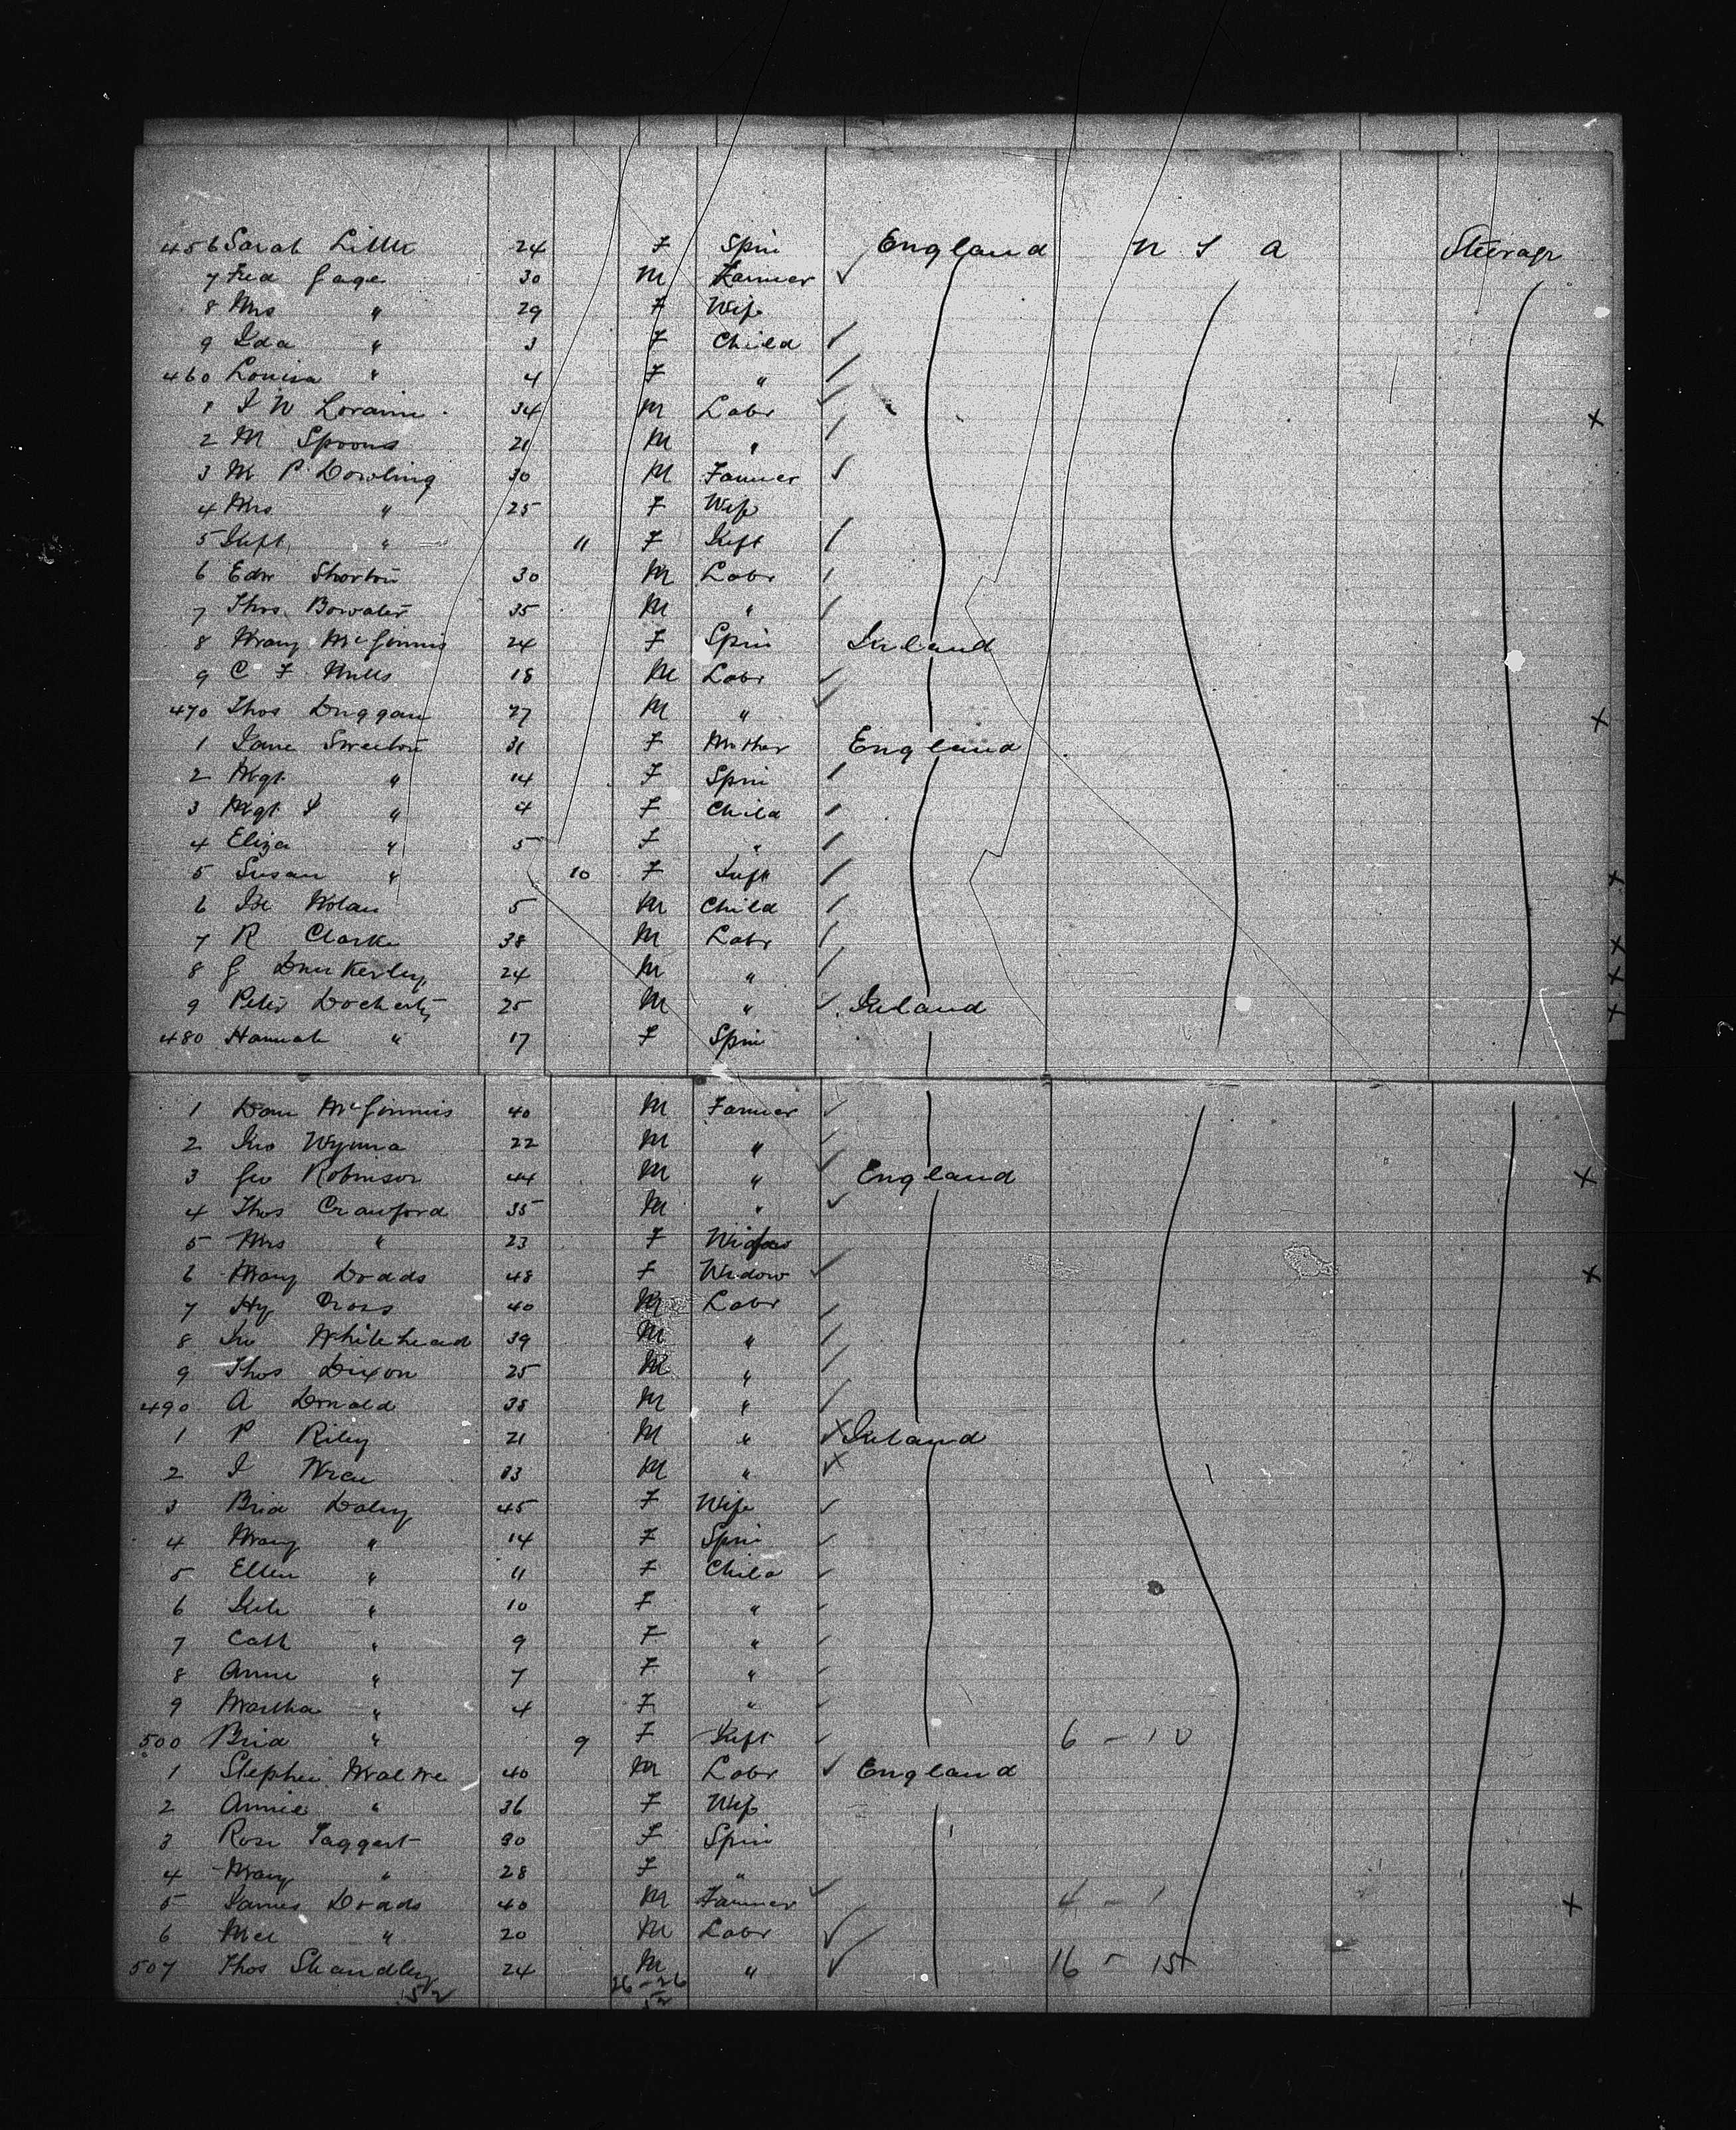 456 Sarah Little 24 F Spin England U S A Steerage
7 Fred Gage 30 M Farmer
8 Mrs " 29 F Wife
9 Ida " 3 F Child
460 Louisa " 4 F "
1 J W Loraine 34 M Labr
2 M Spoons 21 M "
3 M P Dowling 30 M Farmer
4 Mrs " 25 F Wife
5 Inft " 11 F Inft
6 Edw Shorton 30 M Labr
7 Thos Bowater 35 M "
8 Mary McGinnis 24 F Spin Ireland
9 C F Mills 18 M Labr
470 Thos Duggan 27 M "
1 Jane Sweeton 31 F Mother England
2 Mgt " 14 F Spin
3 Mgt J " 4 F Child
4 Eliza " 5 F "
5 Susan " 10 F Inft
6 Nolan 5 M Child
7 R Clarke 38 M Labr
8 G Dunkerley 24 M "
9 Peter Docherty 25 M " Ireland
480 Hannah " 17 F Spin
1 Dan McGinnis 40 M Farmer
2 Jno Wynna 22 M "
3 Geo Robinson 44 M " England
4 Thos Crawford 35 M "
5 Mrs " 23 F
6 Mary Dodds 48 F Widow
7 Hy Cross 40 M Labr
8 Jno Whitehead 39 M "
9 Thos Dixon 25 M "
490 A Donald 38 M "
1 P Riley 21 M " Ireland
2 J Wren 33 M "
3 Brid Daley 45 F Wife
4 Mary " 14 F Spin
5 Ellen " 11 F Child
6 " 10 F "
7 Cath " 9 F "
8 Annie " 7 F "
9 Martha " 4 F "
500 Brid " 9 F Inft 6 - 10
1 Stephen 40 M Labr England
2 Annie " 36 F Wife
3 Rose Taggart 30 F Spin
4 Mary " 28 F "
5 James Dodds 40 M Farmer 4 - 1
6 " 20 M Labr
507 Thos Shandley 24 M " 16 - 15
52 26-26
52